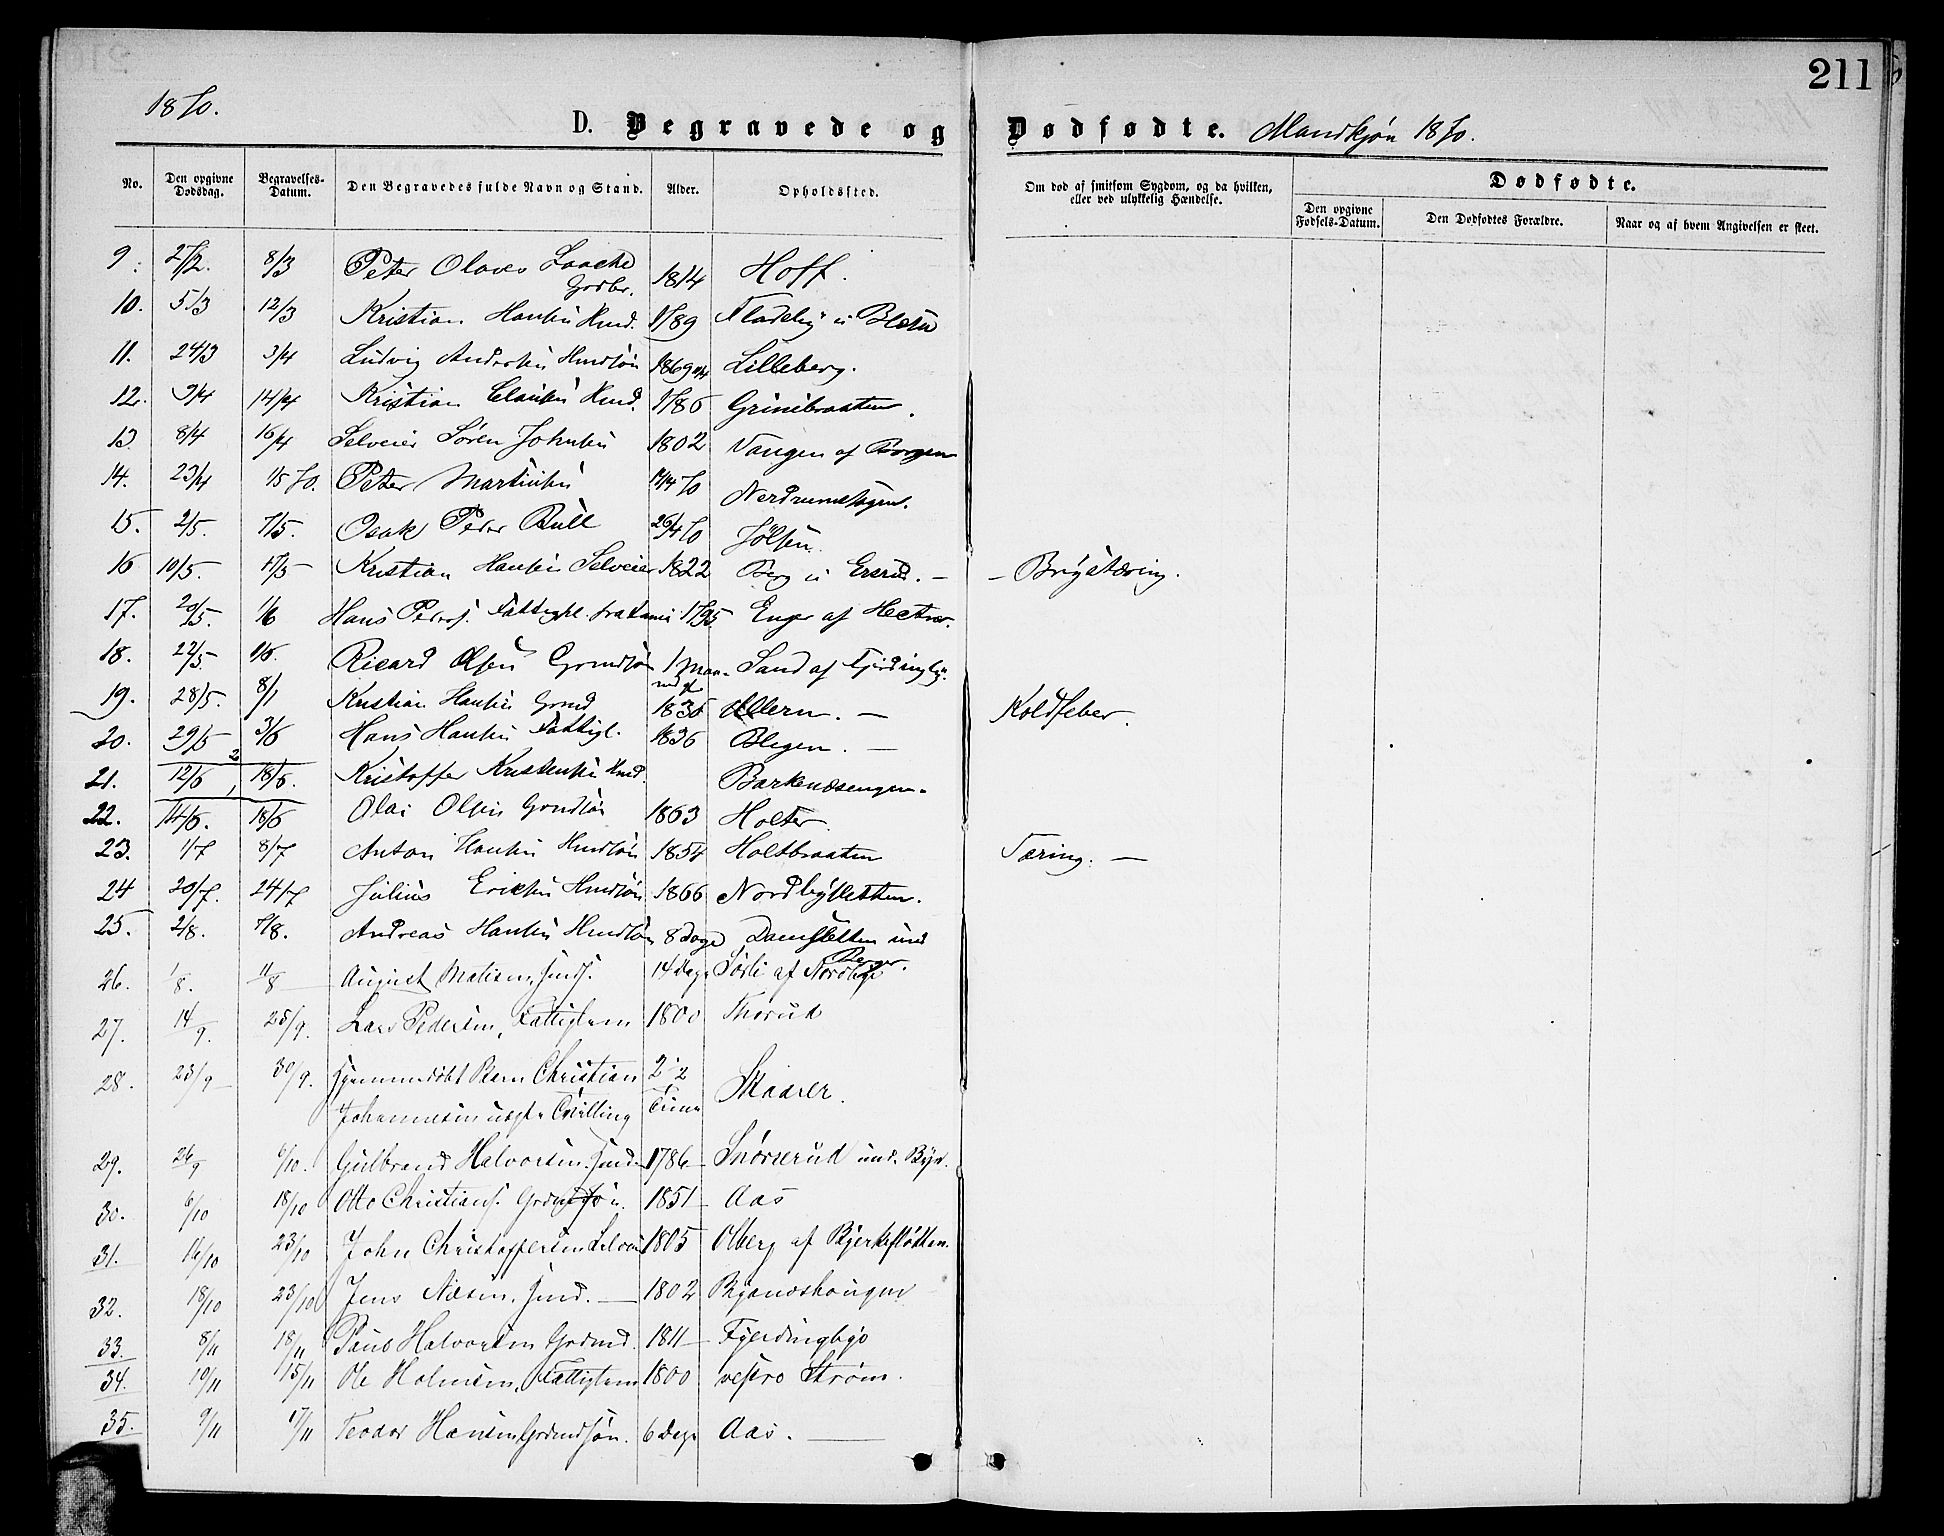 211
1870.
D. Begravede og Dødfødte. Mandkjøn 1870.
No. Den opgivne Dødsdag. Begravelses-Datum. Den Begravedes fulde Navn og Stand. Alder. Opholdssted. Om død af smitsom Sygdom, og da hvilken, eller ved ulykkelig Hændelse. Dødfødte.
Den opgivne Fødsels-Datum. Den Dødfødtes Forældre. Naar og af hvem Angivelsen er skeet.
9. 27/2. 8/3 Peter Olaves Laache 1814 Hoff.
Grdbr.
10. 5/3 12/3 Kristian Hansen Hmd. 1789 Fladeby u Blæsa
11. 24/3 3/4 Ludvig Andersen Hmdsøn 1869 Lilleberg.
12. 9/4 14/4 Kristian Clausen Hmd. 1786 Grinibraaten.
13. 8/4 16/4 Selveier Søren Johnsen 1802 Vangen af Borgen
14. 23/4 1/5 70. Peter Martinsen 14/4 70 Nerdrumsbyen.
15. 2/5. 7/5. Osak Peder Bull 26/4 70 Jølsen.
16 10/5. 17/5 Kristian Hansen Selveier 1822 Berg u Ersrud. — – Brystæring.
17. 29/5. 1/6 Hans Peders. Fattigl. 1795 Enger af Hector.
18. 22/5 1/6. Ricard Olsen Grmdsøn 1 Maaned Sand af Fjerdingby.
19. 28/5. 8/1 Kristian Hansen Grmd 1835 Ellern. — Koldfeber.
20. 29/5 3/6 Hans Hansen Fattigl. 1836 Blegen. —
21. 12/6 18/6. Kristoffer Kristensen Hmd. Barkenæsengen.
22. 14/6. 18/6 Olai Olsen Grmdsøn 1863 Holter.
23. 1/7 8/7 Anton Hansen Hmdsøn 1854 Holtbraaten Tæring. —
24 20/7. 24/7 Julius Ericksen Hmdsøn 1866 Nordbysletten.
25. 2/8. 7/8. Andreas Hansen Hmdsøn 8 Dage Damsletten und
Berger.
26. 1/8. 11/8 August Matisen, Jnds. 14 Dage Sørli af Nordby
27. 14/9. 25/9. Lars Pedersen, Fattiglem 1800 Thorud
28. 23/9 30/9. Hjemmedøbt Barn Christian 2 1/2 Skaarer.
Johannesen uægte Tvilling Time
29. 26/9 6/10. Gulbrand Halvorsen. Jnd. 1786 Snørrerud und. Byer.
30. 6/10 18/10 Otto Christians. Grdmdsøn. 1851 Aas
31. 16/10 23/10 John Christoffersen Selvei 1805 Olberg af Bjerkesløtten.
32. 18/10 23/10 Jens Næsen. Jnd. — 1802 Bjønnshaugen
33. 8/11 18/11 Paul Halvorsen Grdmd. 1811 Fjerdingby
34. 10/11 15/11 Ole Holmsen, Fattiglem 1800 vestre Strøm.
35. 9/11 17/11 Teodor Hansen, Grdmdsøn. 6 Dage Aas. —